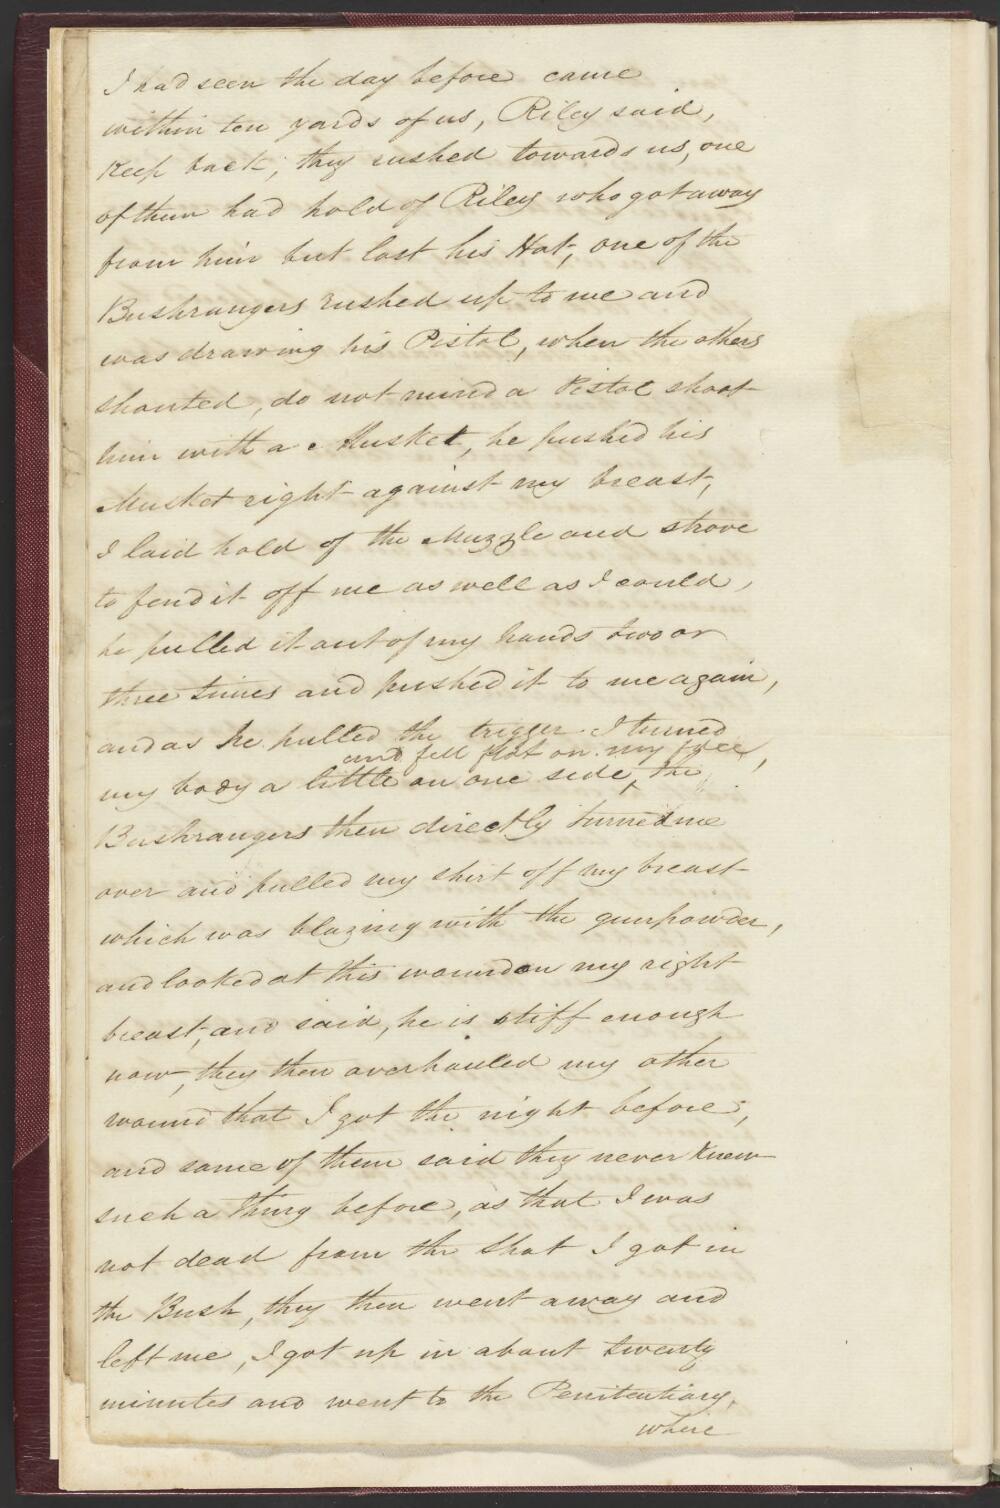 I had seen the day before came
within ten yards of us, Riley said,
Keep back, they rushed towards us, one
of them had hold of Riley who got away
from him but lost his Hat, one of the
Bushrangers rushed up to me and
was drawing his Pistol, when the others
shouted, do not mind a Pistol shoot
him with a Musket, he pushed his
Musket right against my breast,
I laid hold of the Muzzle and strove
to fend it off me as well as I could,
he pulled it out of my hands two or
three times and pushed it to me again,
and as he pulled the trigger I turned
and fell flat on my face,
my body a little on one side, ‸ the
Bushrangers then directly turned me
over and pulled my shirt off my breast
which was blazing with the gunpowder,
and looked at this wound on my right
breast, and said, he is stiff enough
now, they then overhauled my other
wound that I got the night before,
and some of them said they never Knew
such a thing before, as that I was
not dead from the Shot I got in
the Bush, they then went away and
left me, I got up in about twenty
minutes and went to the Penitentiary,
where